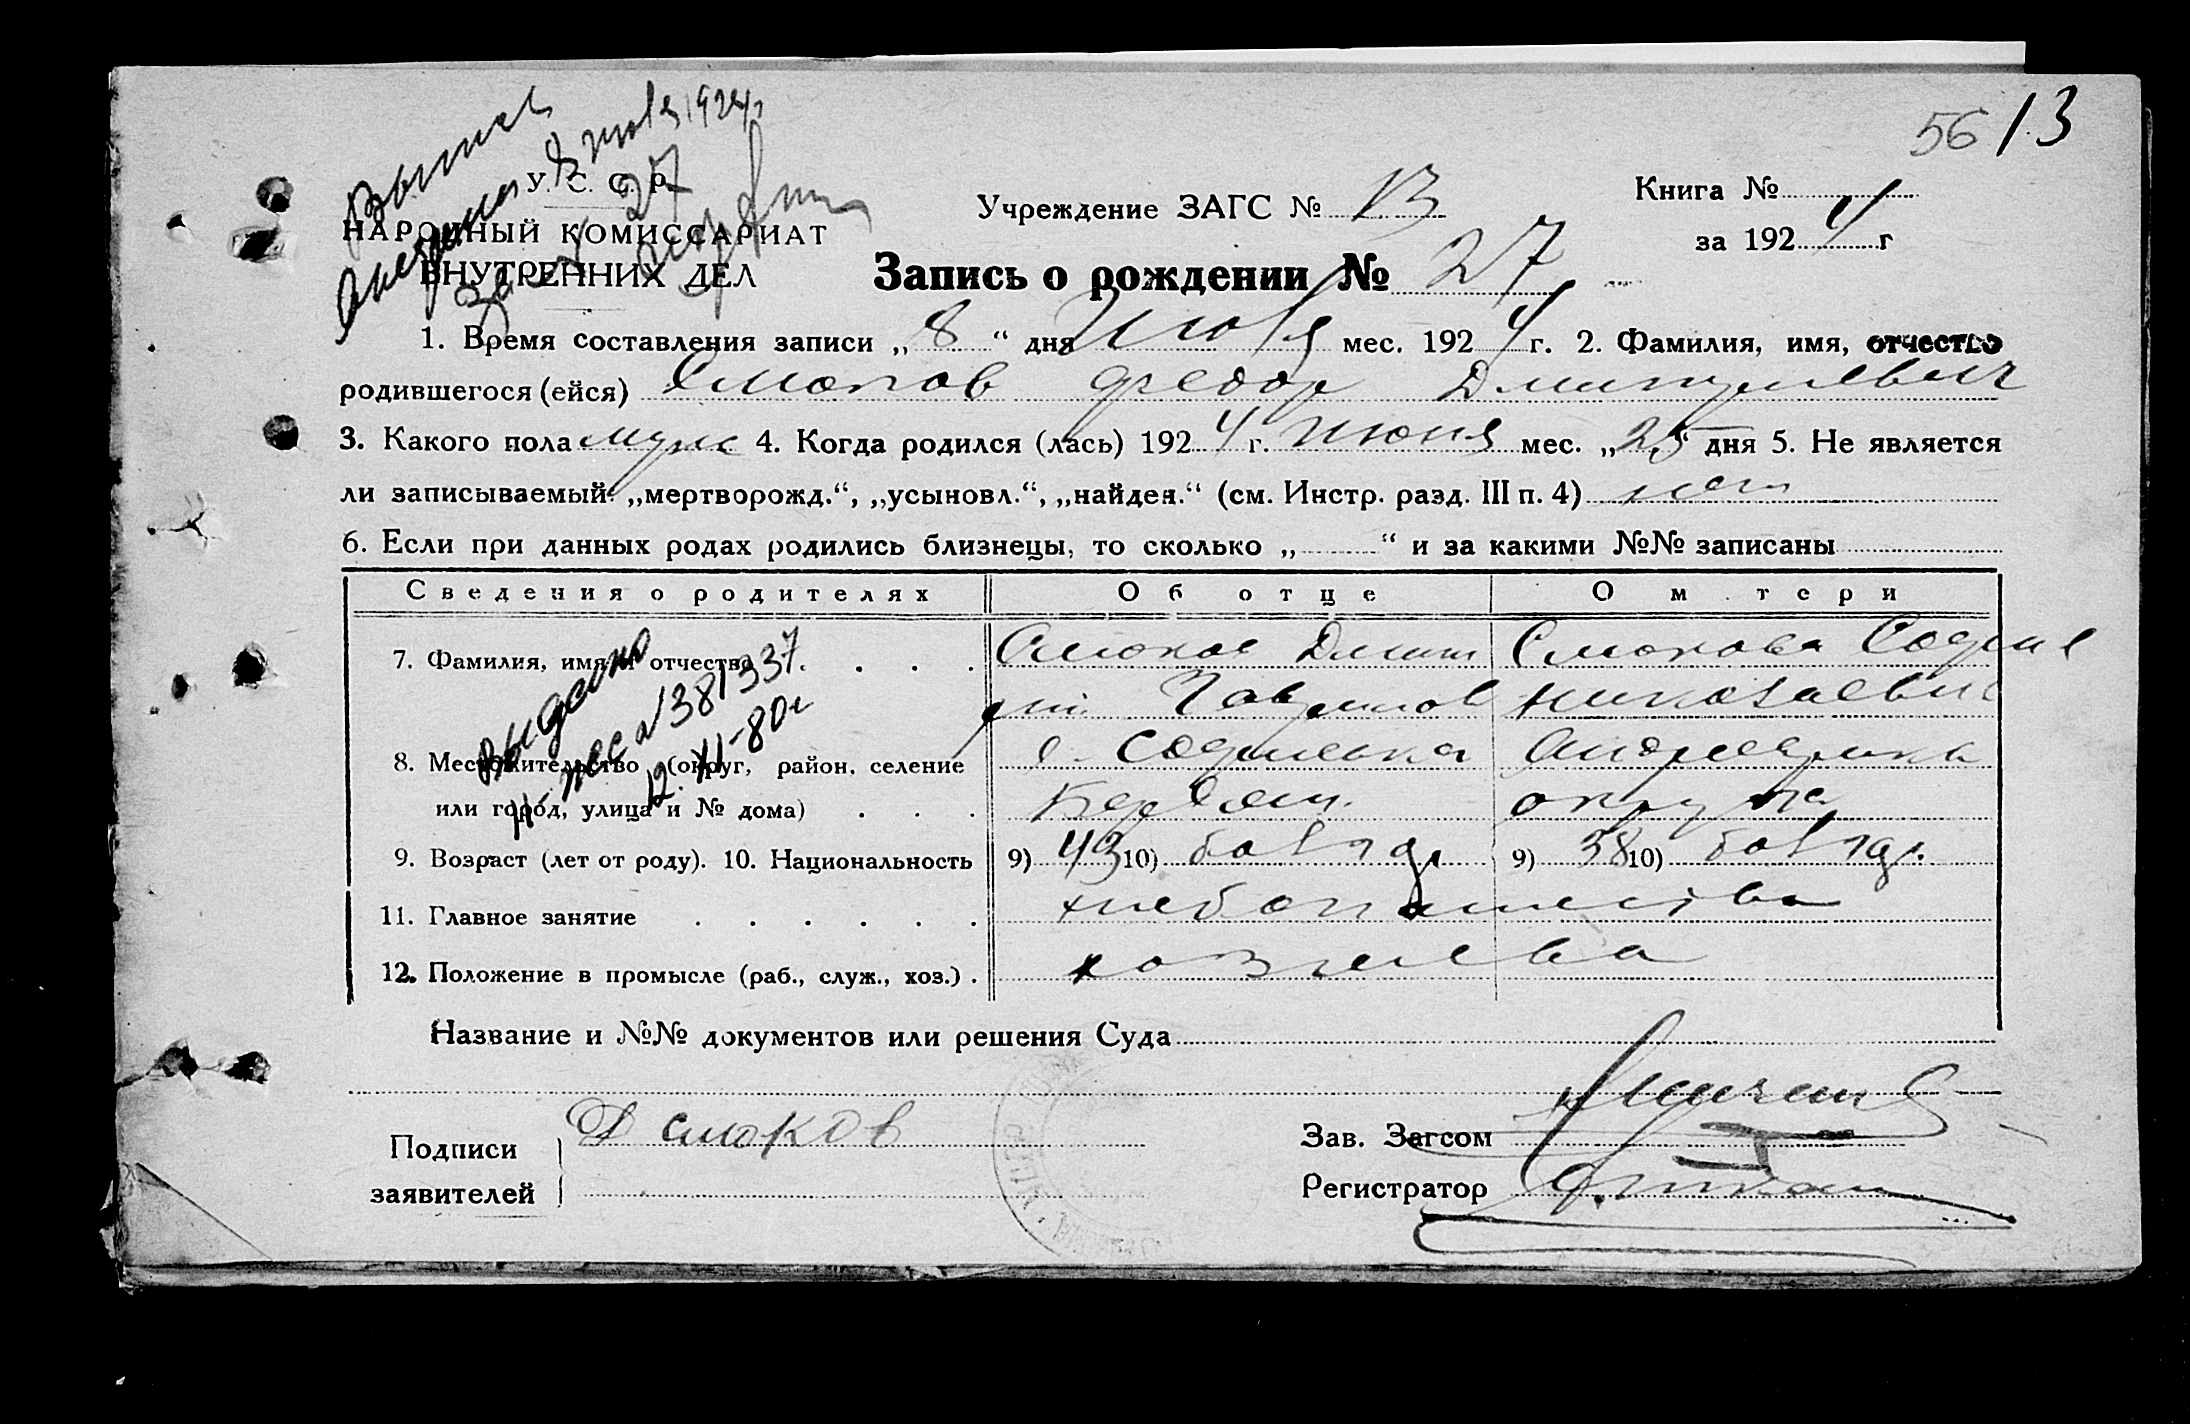 56 13
Выпись
8 июля 1924 г.
27
У. С. С. Р.
НАРОДНЫЙ КОМИССАРИАТ
ВНУТРЕННИХ ДЕЛ
Учреждение ЗАГС № 13
Книга №
за 1924 г
Запись о рождении № 27
1. Время составления записи „8“ дня Июля мес. 1924 г. 2. Фамилия, имя, отчество
родившегося (ейся) Смоков Федор Дмитриевич
3. Какого пола муж 4. Когда родился (лась) 1924 г. июня мес. „25“ дня 5. Не является
ли записываемый: „мертворожд.“, „усыновл.“, „найден.“ (см. Инстр. разд. III п. 4) нет
6. Если при данных родах родились близнецы, то сколько „ “ и за какими №№ записаны
Сведения о родителях Об отце О м тери
7. Фамилия, имя и отчество Смоков Дмит Смокова София
рий Гаврилов Николаевна
8. Местожительство (округ, район, селение с. Софиевка Андреевка
или город, улица и № дома) Бердян. округа
9. Возраст (лет от роду). 10. Национальность 9) 43 10) болгар 9) 38 10) болгар.
11. Главное занятие хлебопашество
12. Положение в промысле (раб., служ., хоз.) хозяева
Выдано
№ 381337
12. XI-80 г
Название и №№ документов или решения Суда
Подписи Д Смоков
заявителей
Зав. Загсом
Регистратор